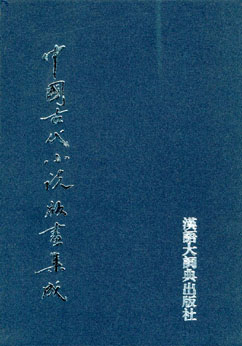 中國古代小說版畫集成
漢語大詞典出版社